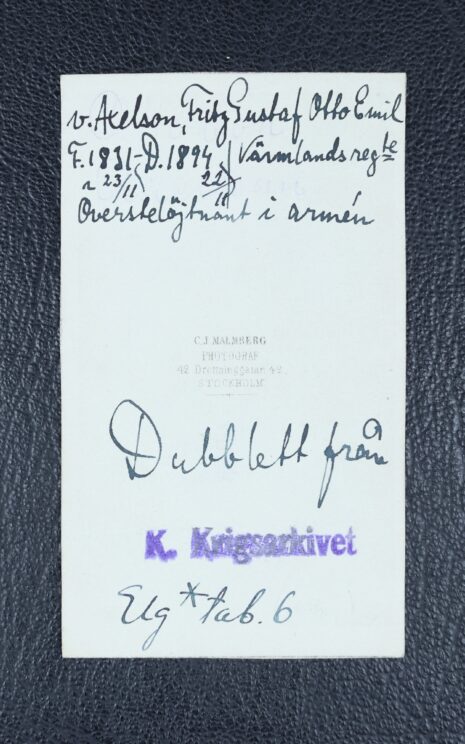 v. Axelson, Fritz Gustaf Otto Emil
F. 1831 - D. 1894 / Värmlands regte
23/11 22/11
Överstelöjtnant i armén
C. J. MALMBERG
PHOTOGRAF
42 Drottninggatan 42
STOCKHOLM
Dubblett från
K. Krigsarkivet
Elg * tab. 6